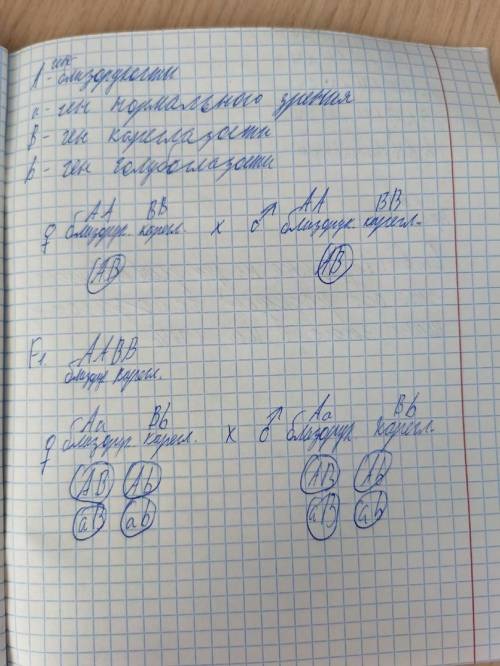 A - ген близорукости
a - ген нормального зрения
B - ген кареглазости
b - ген голубоглазости
AA BB AA BB
♀ близорук. карегл. x ♂ близорук. карегл.
AB AB
F1. AABB
близор карегл.
Aa Bb Aa Bb
♀ близорук. карегл. x ♂ близорук карегл.
AB Ab AB Ab
aB ab aB ab